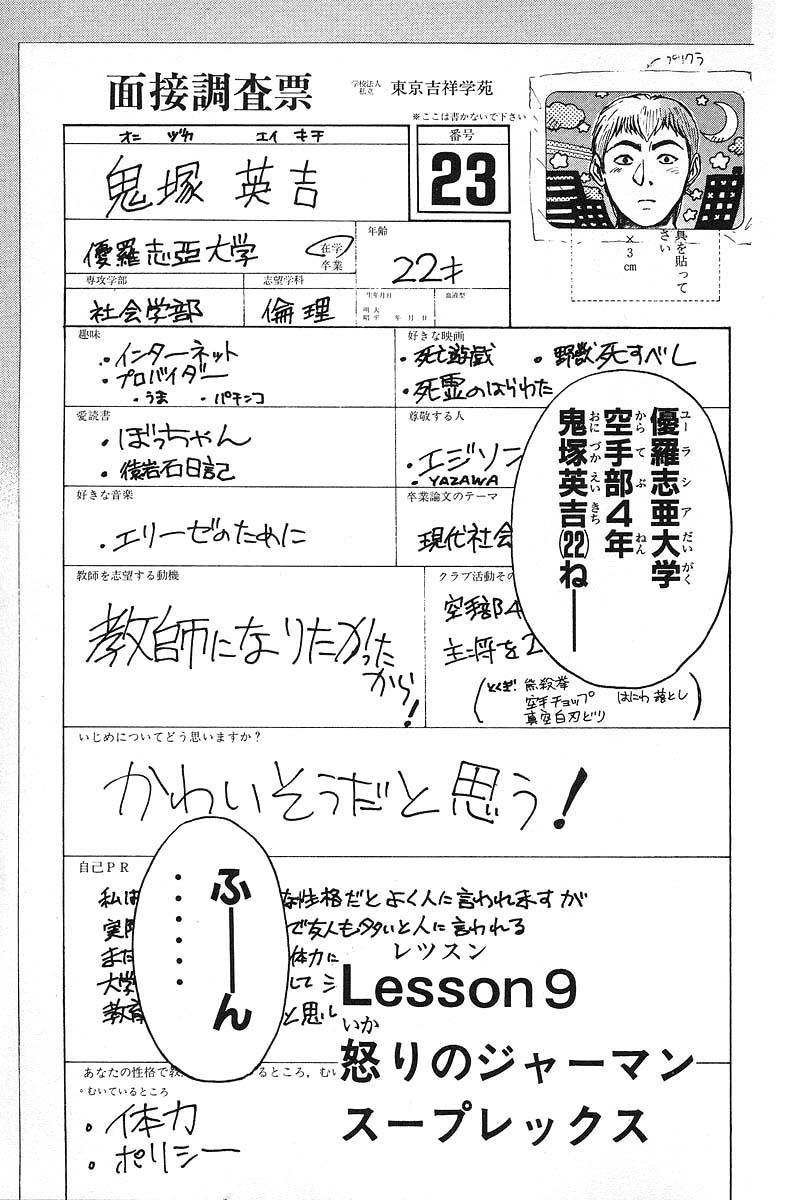 プリクラ
面接調査票
学校法人
私立
東京吉祥学苑
※ここは書かないで下さい
オニ ヅカ エイ キチ
鬼塚 英吉
番号
23
真を貼って
さい
×3cm
優羅志亜大学
在学
卒業
年齢
22才
専攻学部
志望学科
生年月日
血液型
社会学部
倫理
明大
昭平 年 月 日
趣味
・インターネット
・プロバイダー
・うま ・パチンコ
好きな映画
・死亡遊戯 ・野獣死すべし
・死霊のはらわた
愛読書
・ぼっちゃん
・猿岩石日記
尊敬する人
・エジソン
・YAZAWA
好きな音楽
・エリーゼのために
卒業論文のテーマ
現代社会
優羅志亜大学
ユーラシアだいがく
空手部4年
からてぶ ねん
鬼塚英吉(22)ねー
おにづかえいきち
教師を志望する動機
教師になりたかった
から!
クラブ活動その
空手部4
主将を2
(とくぎ:熊殺拳
空手チョップ はにわ落とし
真空白刃どり)
いじめについてどう思いますか?
かわいそうだと思う!
自己PR
私は
な性格だとよく人に言われますが
実際
で友人も多いと人に言われる
また
体力に
大学
して
教育
と思い
ふーん
・・・・・・
レツスン
Lesson9
いか
怒りのジャーマン
スープレックス
あなたの性格で教
いるところ,むい
。むいているところ
・体力
・ポリシー